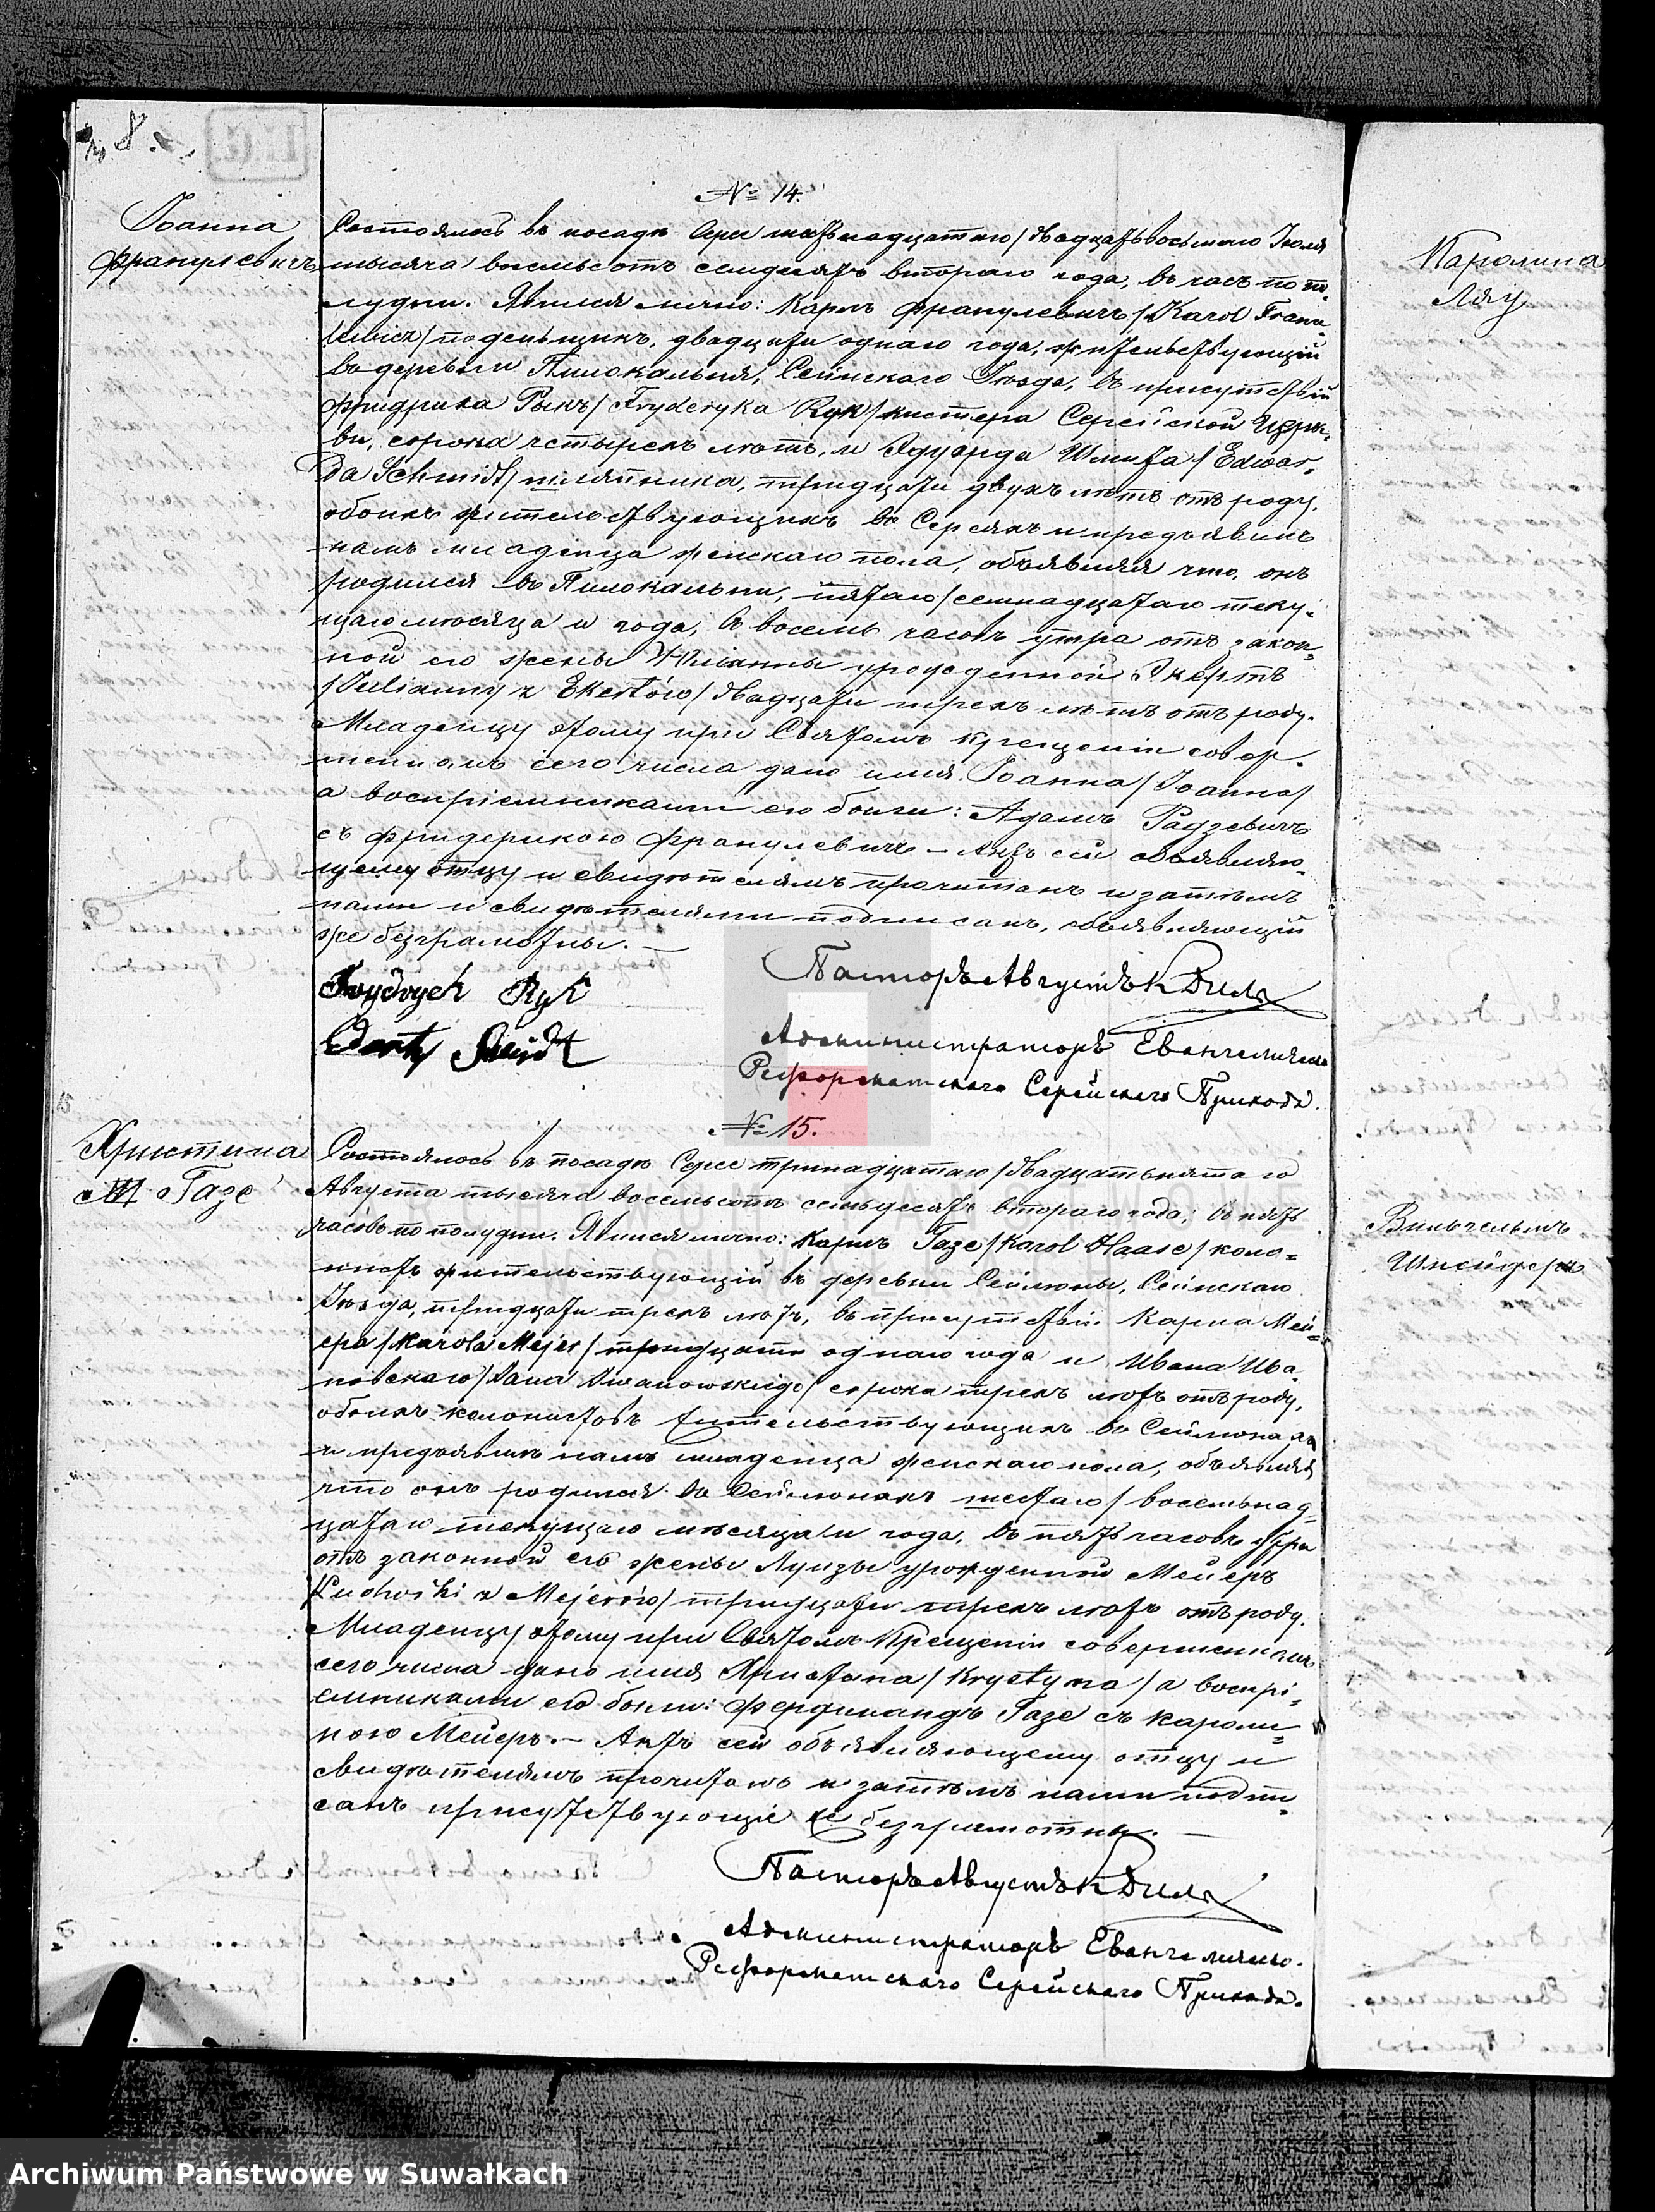 8.
№ 14.
Іоанна
Францулевичъ
Состоялось въ посадѣ Сереи шестьнадцатаго/двадцать восьмаго Іюля
тысяча восемьсотъ семьдесятъ втораго года, въ часъ по по-
лудни. Явился лично: Карлъ Францулевичъ /Karol Franc
ulewicz/ поденьщикъ, двадцати одного года, жительствующій
въ деревни Пилокальня, Сейнскаго Уѣзда, въ присутствіи
Фридриха Рыкъ/ Fryderyka Ryk/ кистера Серейской Церк-
ви, сорока четырехъ лѣтъ, и Эдуарда Шмита / Edwar-
da Schmidt/ шляпника, тридцати двухъ лѣтъ отъ роду,
обоихъ жительствующихъ въ Сереяхъ и предъявилъ
намъ младенца женскаго пола, объявляя что, онъ
родился въ Пилокальни, пятаго/семнадцатаго теку-
щаго мѣсяца и года, въ восемь часовъ утра отъ закон-
ной его жены Юліанны урожденной Экертъ
/Julianny z Ekertów/ двадцати трехъ лѣтъ отъ роду.
Младенцу этому при Святомъ крещеніи совер-
шенномъ сего числа дано имя Іоанна /Joanna/
а воспріемниками его были: Адамъ Радзевичъ
съ Фридерикою Францулевичъ – Актъ сей объявляю-
щему отцу и свидѣтелямъ прочитанъ и затѣмъ
нами и свидѣтелями подписанъ, объявляющій
же безграмотны. —
Frydrych Ryk
Пасторъ Августъ К Диль
Schmidt
Администраторъ Евангелическо
Реформатскаго Серейскаго Прихода.
№ 15.
Христина
Газе
Состоялось въ посадѣ Серее тринадцатаго/двадцатьпятаго
Августа тысяча восемьсотъ семьдесятъ втораго года, въ пять
часовъ по полудни. Явился лично: Карлъ Газе /Karol Haase/ коло-
нистъ жительствующій въ деревни Сейлюны, Сейнскаго
Уѣзда, тридцати трехъ лѣтъ, въ присутствіи Карла Мей-
ера /Karola Mejer/ тридцати одного года и Ивана Ива-
новскаго /Jana Iwanowskiego/ сорока трехъ лѣтъ отъ роду,
обоихъ колонистовъ жительствующихъ въ Сейлюнахъ
и предъявилъ намъ младенца женскаго пола, объявляя
что онъ родился въ Сейлюнахъ шестаго/ восемьнад-
цатаго текущаго мѣсяца и года, въ пять часовъ утра
отъ законной его жены Луизы урожденной Мейеръ
z Mejerów/ тридцати трехъ лѣтъ отъ роду.
Младенцу этому при Святомъ Крещеніи совершенномъ
сего числа дано имя Христина /Krystyna/ а воспрі-
емниками его были: Фердинандъ Газе съ Кароли-
ною Мейеръ. – Актъ сей объявляющему отцу и
свидѣтелямъ прочитанъ и затѣмъ нами подпи-
санъ присутствующіе же безграмотны. —
Пасторъ Августъ К Диль
Администраторъ Евангелическо-
Реформатскаго Серейскаго Прихода.
Каролина
Ляу
Вильгельмъ
Шнейдеръ
Archiwum Państwowe w Suwałkach